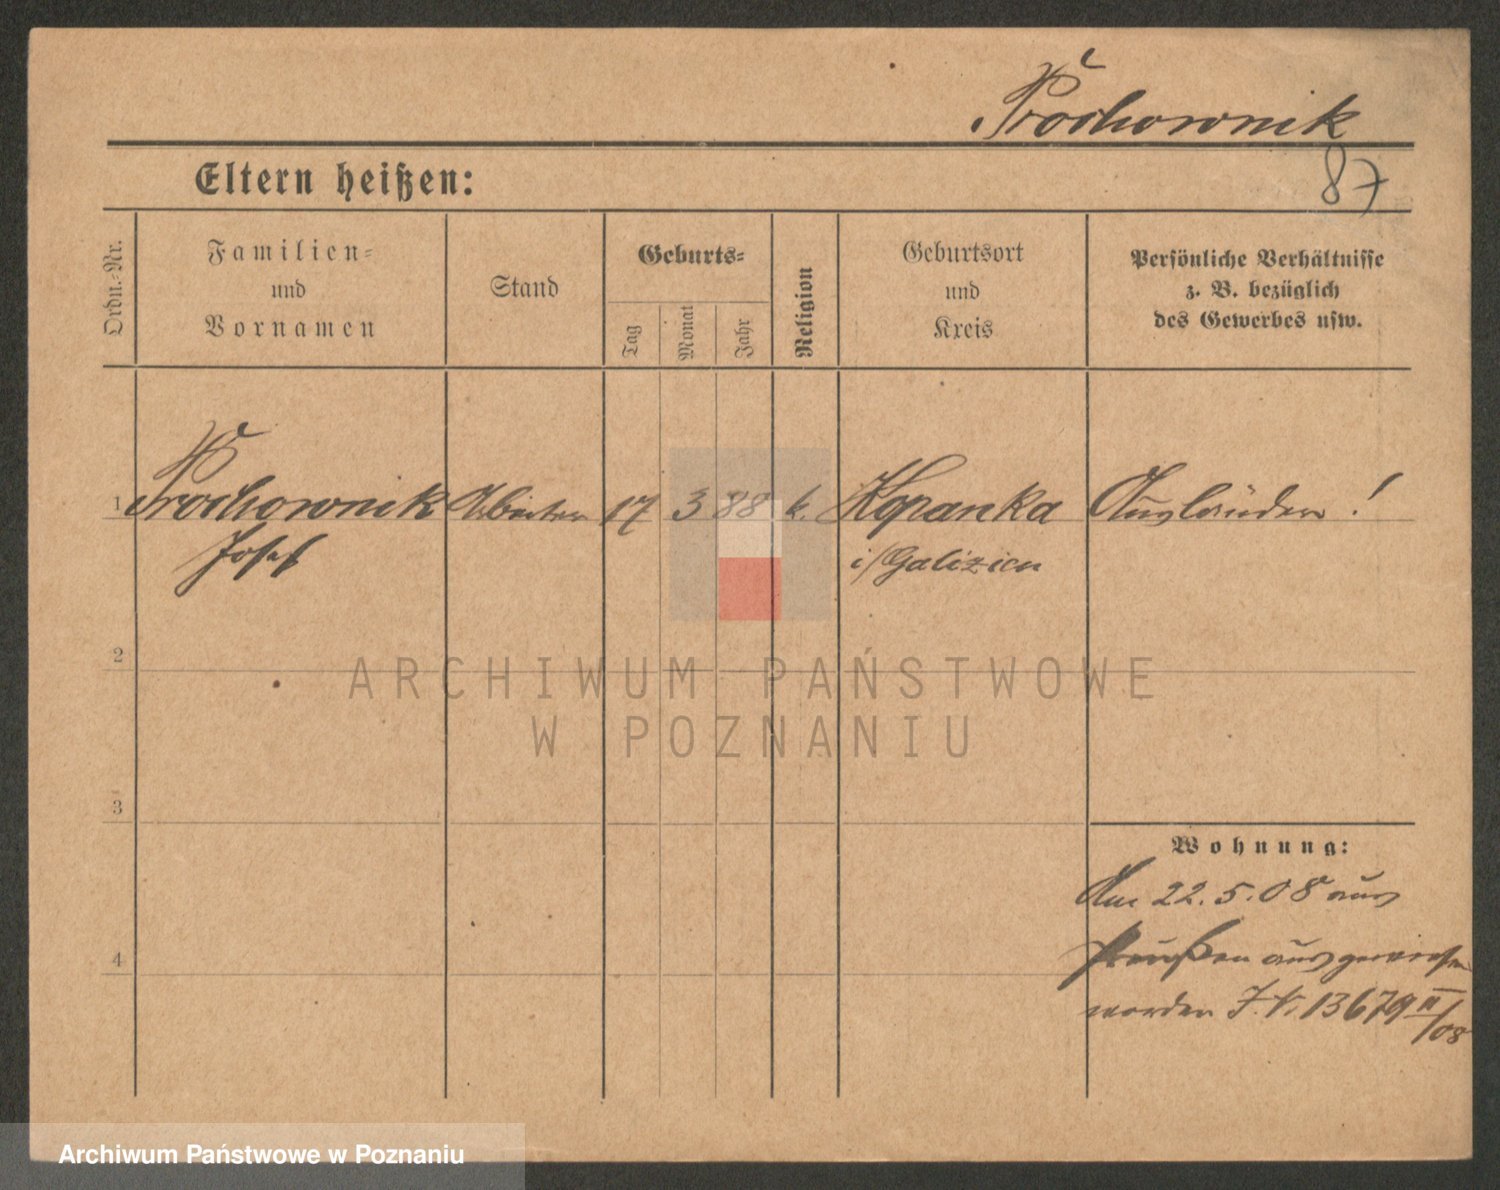 Prochownik
87
Eltern heißen:
Ordn.-Nr.
Familien-
und
Vornamen
Stand
Geburts-
Tag
Monat
Jahr
Religion
Geburtsort
und
Kreis
Persönliche Verhältnisse
z. B. bezüglich
des Gewerbes usw.
1 Prochownik Arbeiter 17 3 88 k. Kopanka Ausländer!
Josef i/Galizien
2
ARCHIWUM PAŃSTWOWE
W POZNANIU
3
Wohnung:
Am 22.5.08 aus
4
Preußen ausgewiesen
worden J.N. 13679 II/08
Archiwum Państwowe w Poznaniu